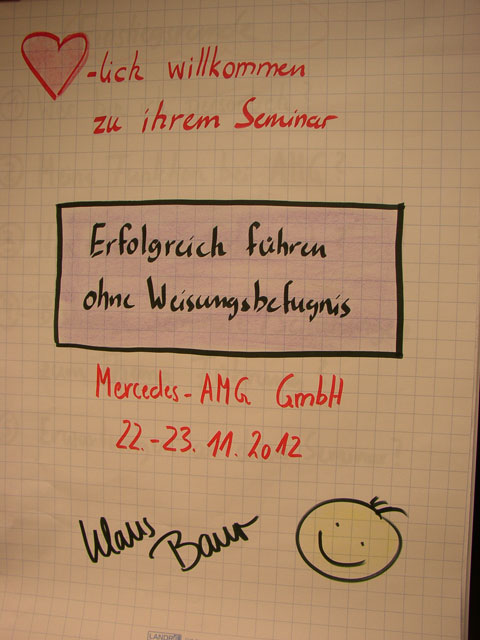 -lich willkommen
zu ihrem Seminar
Erfolgreich führen
ohne Weisungsbefugnis
Mercedes-AMG GmbH
22.-23. 11. 2012
Klaus